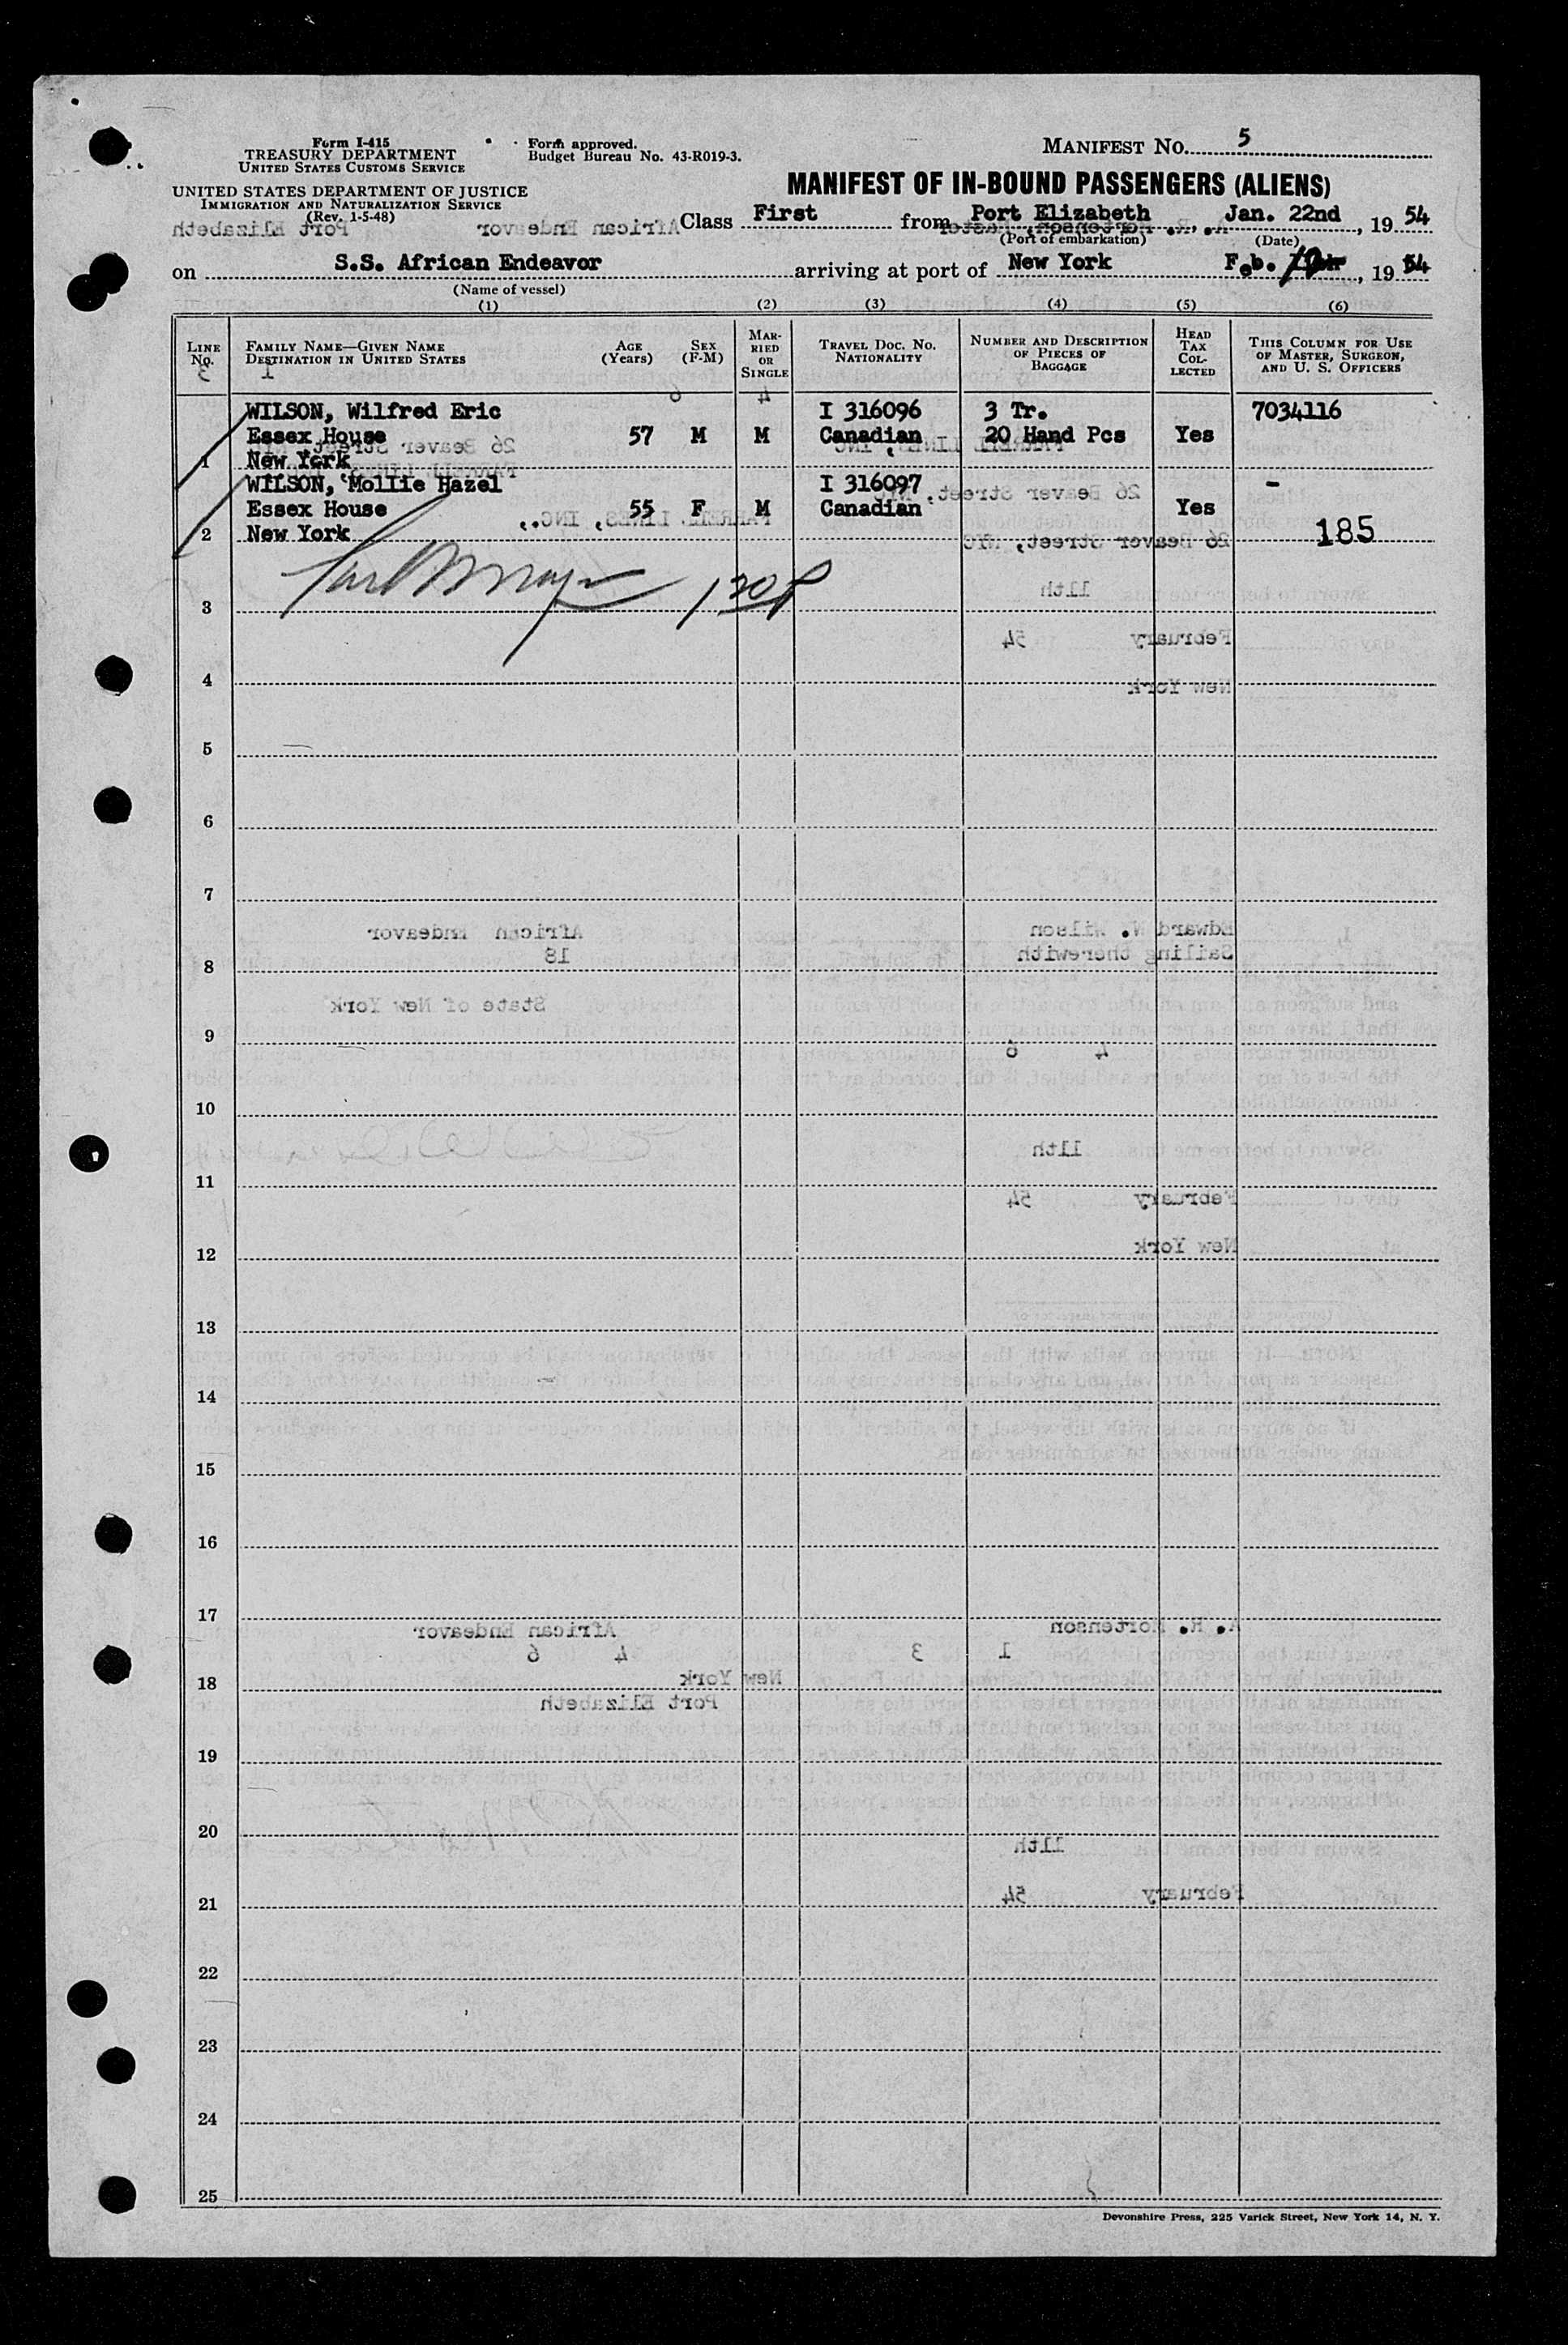 Form I-415
TREASURY DEPARTMENT
UNITED STATES CUSTOMS SERVICE
UNITED STATES DEPARTMENT OF JUSTICE
IMMIGRATION AND NATURALIZATION SERVICE
(Rev. 1-5-48)
Form approved.
Budget Bureau No. 43-R019-3.
MANIFEST NO. 5
MANIFEST OF IN-BOUND PASSENGERS (ALIENS)
Class First from Port Elizabeth Jan. 22nd, 1954
(Port of embarkation) (Date)
on S.S. African Endeavor arriving at port of New York Feb. , 1954
(Name of vessel)
(1) (2) (3) (4) (5) (6)
LINE NO. FAMILY NAME—GIVEN NAME DESTINATION IN UNITED STATES AGE (Years) SEX (F-M) MARRIED OR SINGLE TRAVEL DOC. NO. NATIONALITY NUMBER AND DESCRIPTION OF PIECES OF BAGGAGE HEAD TAX COLLECTED THIS COLUMN FOR USE OF MASTER, SURGEON, AND U. S. OFFICERS
WILSON, Wilfred Eric I 316096 3 Tr. 7034116
Essex House 57 M M Canadian 20 Hand Pcs Yes
1 New York
WILSON, Mollie Hazel I 316097 -
Essex House 55 F M Canadian Yes
2 New York 185
3
4
5
6
7
8
9
10
11
12
13
14
15
16
17
18
19
20
21
22
23
24
25
Devonshire Press, 225 Varick Street, New York 14, N. Y.